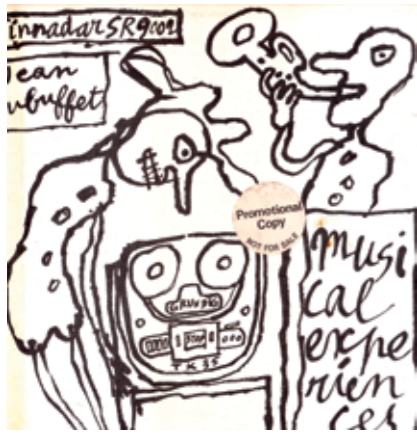 innadar SR9002
Jean
Dubuffet
Promotional
Copy
NOT FOR SALE
GRUNDIG
STOP
TK 35
musi
cal
expe
rien
ces